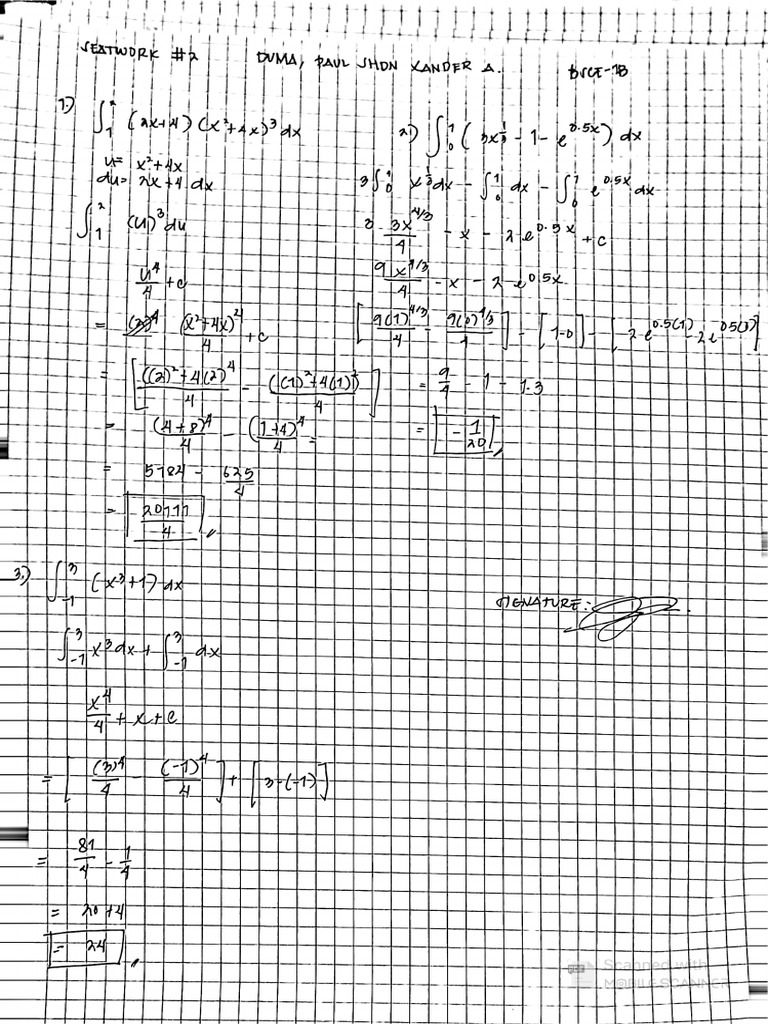 SEATWORK #2 DUMA, PAUL JHON XANDER A. BSCE-1B
1) ∫₁² (2x+4) (x²+4x)³ dx
u= x²+4x
du= 2x+4 dx
∫₁² (u)³ du
u⁴/4 + c
= (x²+4x)⁴/4 + c
= [((2)²+4(2))⁴/4 - ((1)²+4(1))⁴/4]
= (4+8)⁴/4 - (1+4)⁴/4 =
= 5184 - 625/4
= 20111/4
2) ∫₀¹ (3x^(1/3) - 1 - e^(0.5x)) dx
3∫₀¹ x^(1/3) dx - ∫₀¹ dx - ∫₀¹ e^(0.5x) dx
3 3x^(4/3)/4 - x - 2 e^(0.5x) + c
9x^(4/3)/4 - x - 2 e^(0.5x)
[9(1)^(4/3)/4 - 9(0)^(4/3)/4] - [1-0] - [2e^(0.5(1)) - 2e^(0.5(0))]
= 9/4 - 1 - 1.3
= - 1/20
3.) ∫₋₁³ (x³+1) dx
∫₋₁³ x³ dx + ∫₋₁³ dx
x⁴/4 + x + c
= [(3)⁴/4 - (-1)⁴/4] + [3-(-1)]
= 81/4 - 1/4
= 20+4
= 24
SIGNATURE:
Scanned with
MOBILE SCANNER